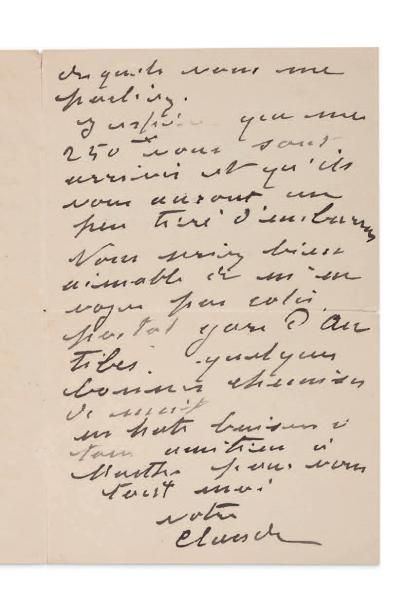 desquels vous me
parliez.
J'espère que mes
250 F vous sont
arrivés et qu'ils
vous auront un
peu tiré d'embarras
Vous seriez bien
aimable de m'en
voyer par colis
postal gare d'An
tibes. quelques
bonnes chemises
de nuit
en hâte baisers à
tous amitiés à
Marthe pour vous
tout moi
votre
Claude